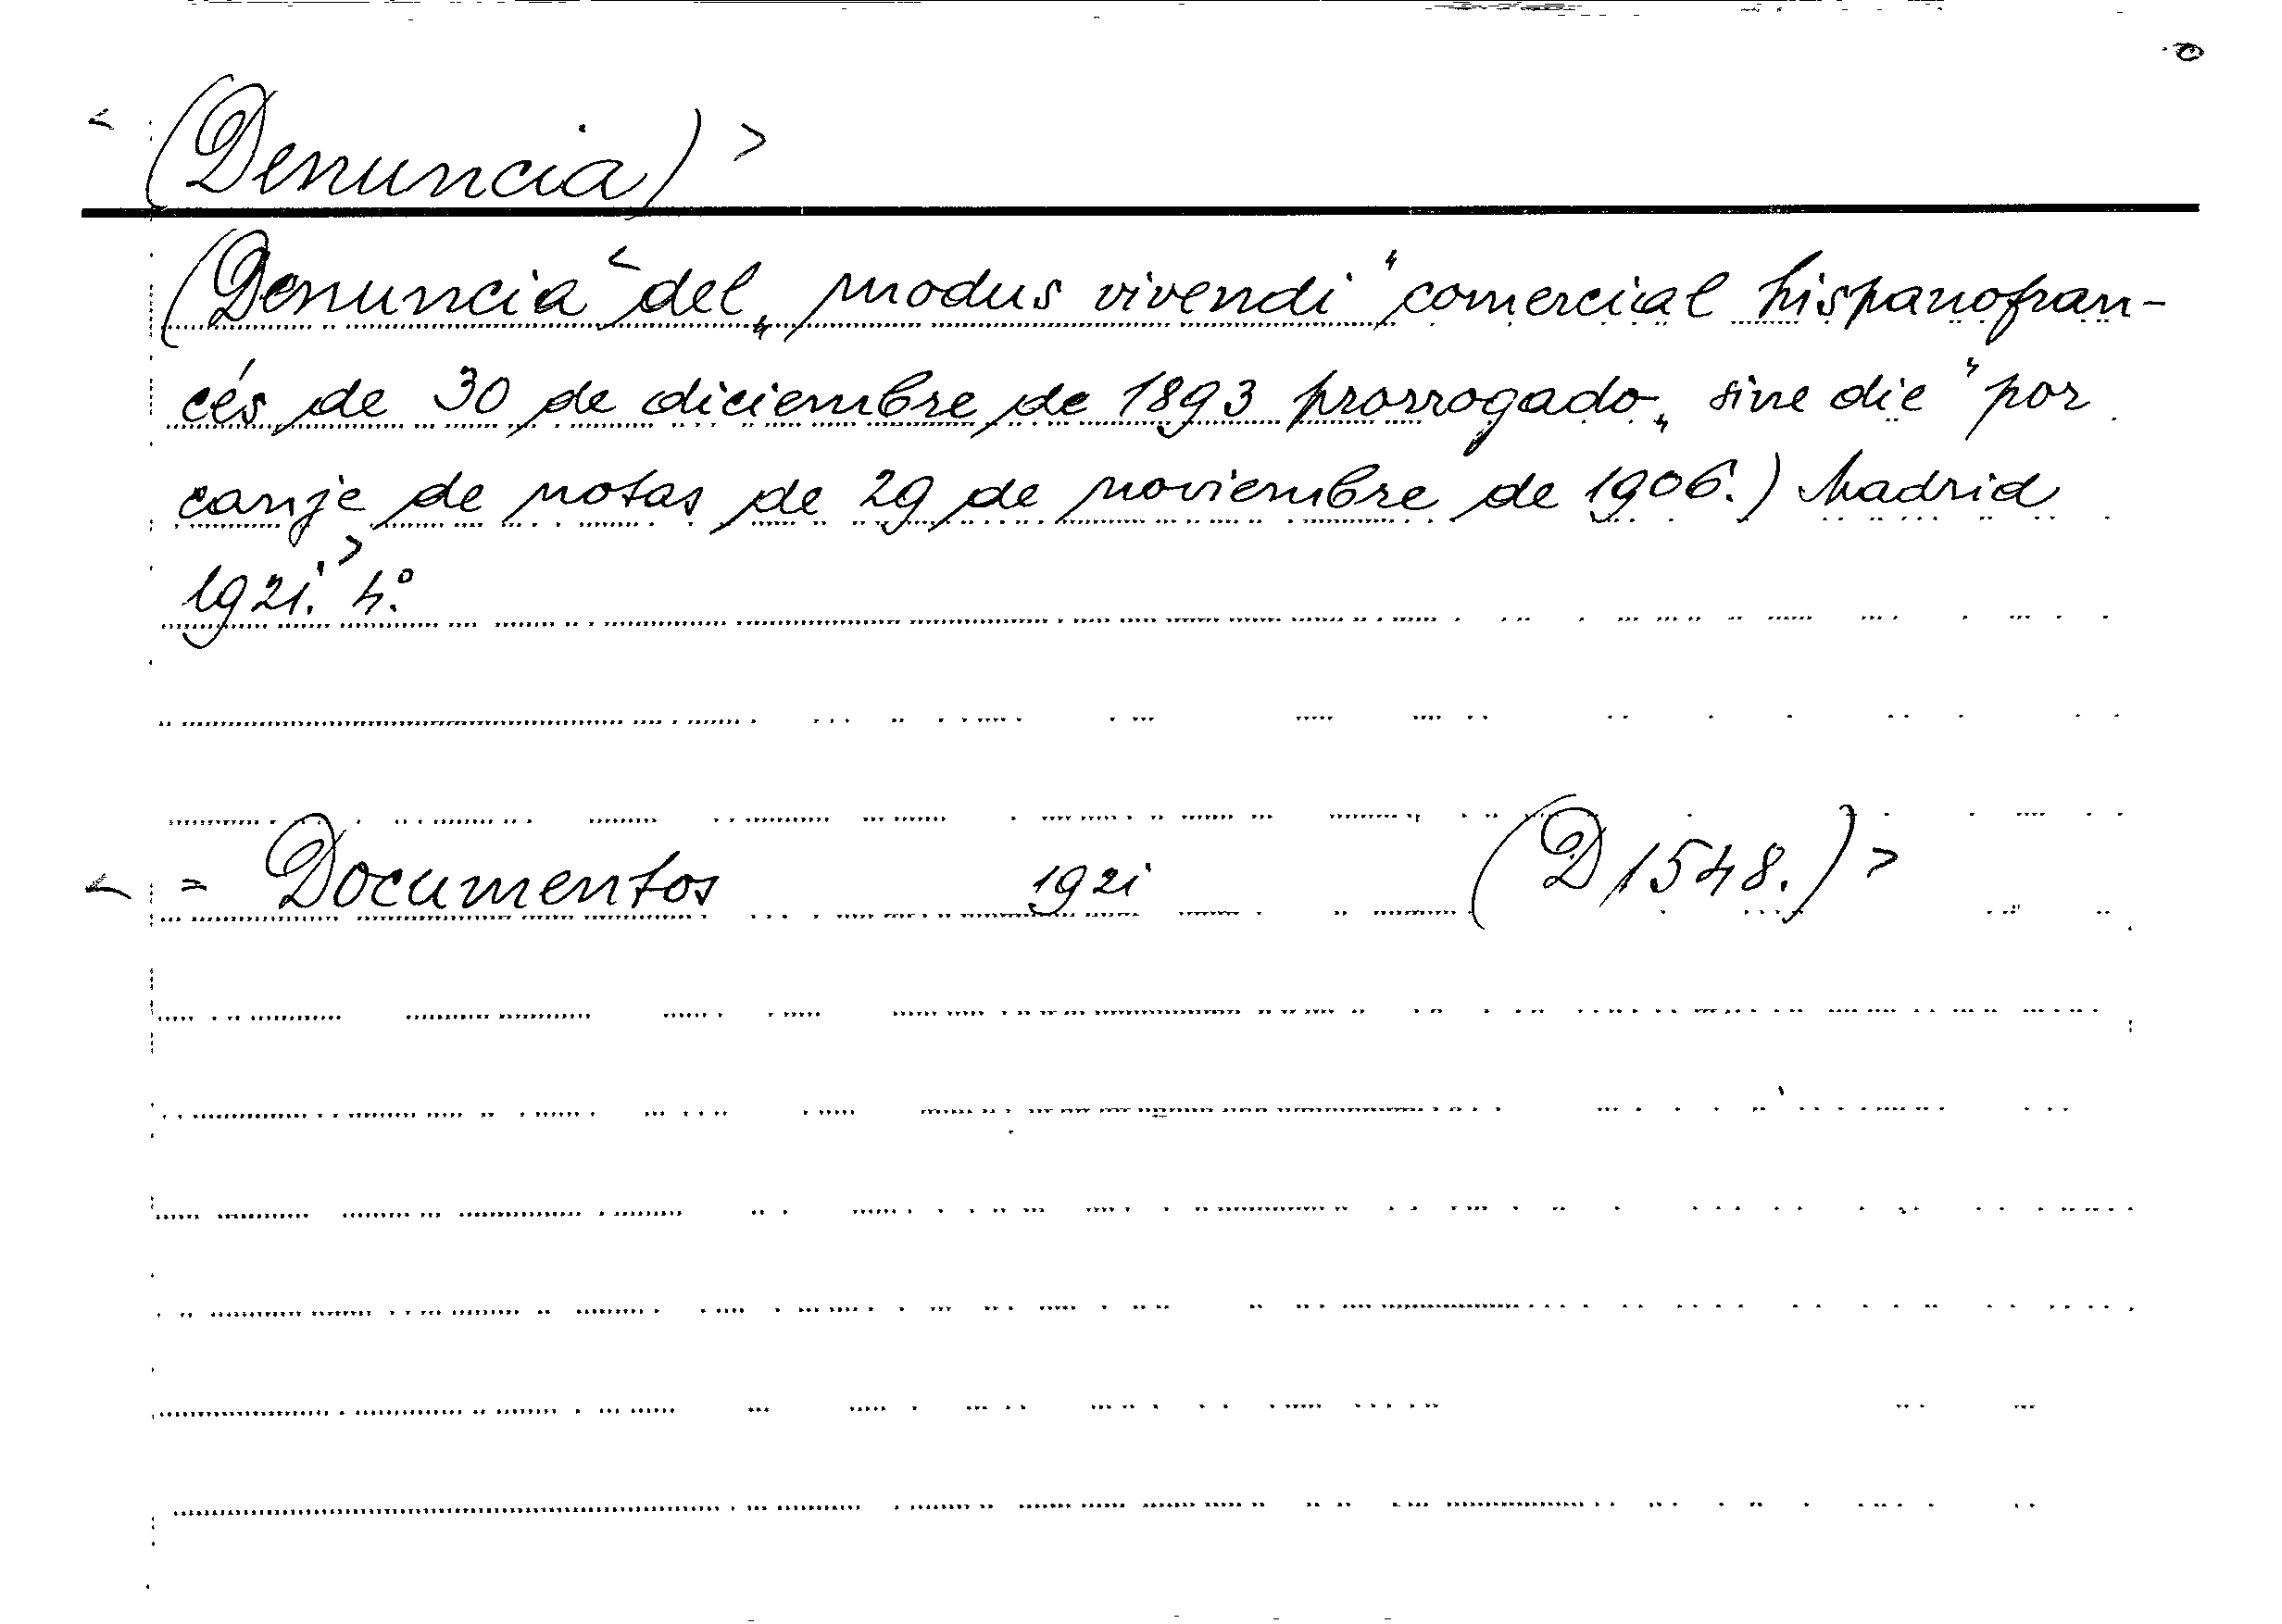 < (Denuncia) >
(Denuncia < del „modus vivendi“ comercial hispanofran-
cés de 30 de diciembre de 1893 prorrogado „sine die“ por
canje de notas de 29 de noviembre de 1906.) Madrid
1921. > 4°.
< = Documentos 1921 (D 1548.) >